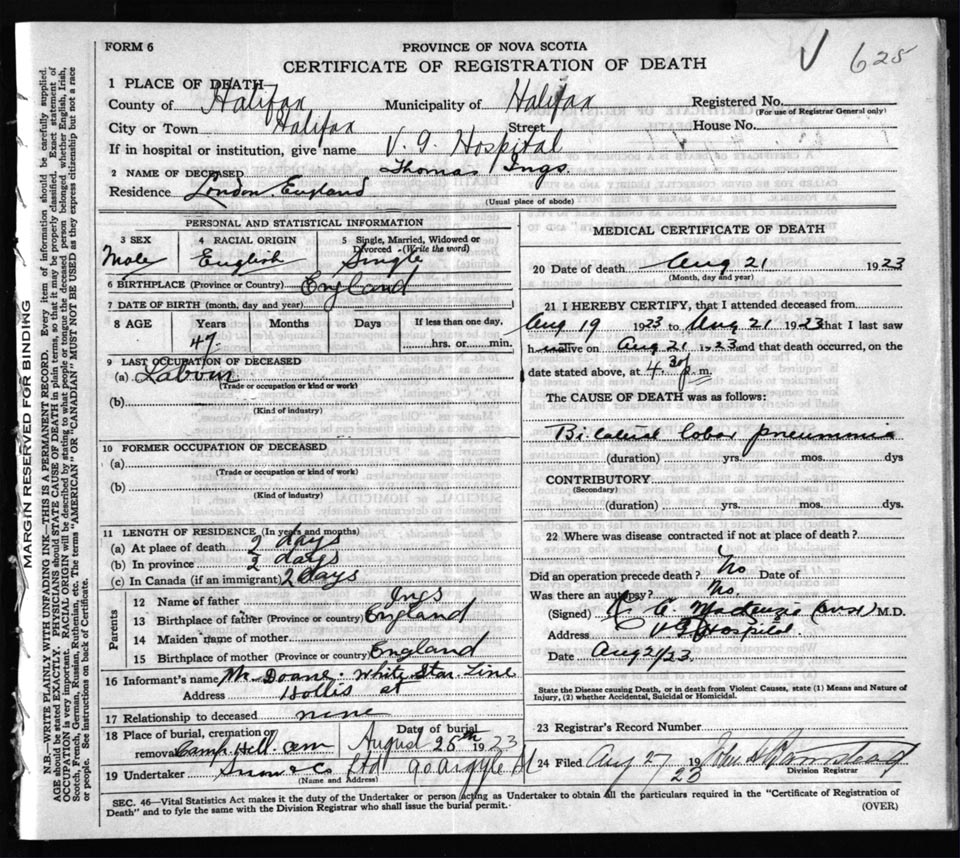 FORM 6
PROVINCE OF NOVA SCOTIA
CERTIFICATE OF REGISTRATION OF DEATH
√ 625
1 PLACE OF DEATH
County of Halifax Municipality of Halifax Registered No.
(For use of Registrar General only)
City or Town Halifax Street House No.
If in hospital or institution, give name V. G. Hospital
2 NAME OF DECEASED Thomas Ings.
Residence London. England
(Usual place of abode)
PERSONAL AND STATISTICAL INFORMATION
3 SEX
Male
4 RACIAL ORIGIN
English
5 Single, Married, Widowed or
Divorced (Write the word)
Single
6 BIRTHPLACE (Province or Country) England
7 DATE OF BIRTH (month, day and year)
8 AGE Years Months Days If less than one day,
49. hrs. or min.
9 LAST OCCUPATION OF DECEASED
(a) Labour
(Trade or occupation or kind of work)
(b)
(Kind of industry)
10 FORMER OCCUPATION OF DECEASED
(a)
(Trade or occupation or kind of work)
(b)
(Kind of industry)
11 LENGTH OF RESIDENCE (In years and months)
(a) At place of death 2 days
(b) In province 2 days
(c) In Canada (if an immigrant) 2 days
Parents
12 Name of father Ings
13 Birthplace of father (Province or country) England
14 Maiden name of mother
15 Birthplace of mother (Province or country) England
16 Informant's name Mr. Doane. White Star. Line
Address Hollis st
17 Relationship to deceased none
18 Place of burial, cremation or
removal Camp. Hill. cem
Date of burial
August 28th 1923
19 Undertaker Snow & Co Ltd 90 Argyle St
(Name and Address)
MEDICAL CERTIFICATE OF DEATH
20 Date of death Aug 21 1923
(Month, day and year)
21 I HEREBY CERTIFY, that I attended deceased from
Aug 19 1923 to Aug 21 1923 that I last saw
h alive on Aug 21 1923 and that death occurred, on
date stated above, at 4.30 p.m.
The CAUSE OF DEATH was as follows:
Bilateral lobar pneumonia
(duration) yrs. mos. dys
CONTRIBUTORY
(Secondary)
(duration) yrs. mos. dys.
22 Where was disease contracted if not at place of death?
Did an operation precede death? No Date of
Was there an autopsy? No.
(Signed) C. A. Mackenzie M.D.
Address V G Hospital
Date Aug 21/23.
State the Disease causing Death, or in death from Violent Causes, state (1) Means and Nature of
Injury, (2) whether Accidental, Suicidal or Homicidal.
23 Registrar's Record Number
24 Filed Aug 27 1923
Division Registrar
SEC. 46—Vital Statistics Act makes it the duty of the Undertaker or person acting as Undertaker to obtain all the particulars required in the "Certificate of Registration of
Death" and to fyle the same with the Division Registrar who shall issue the burial permit.
(OVER)
MARGIN RESERVED FOR BINDING
N.B.—WRITE PLAINLY WITH UNFADING INK—THIS IS A PERMANENT RECORD. Every item of information should be carefully supplied.
AGE should be stated EXACTLY. PHYSICIANS should STATE CAUSE OF DEATH in plain terms, so that it may be properly classified. Exact statement of
OCCUPATION is very important. RACIAL ORIGIN will be described by stating to what people or tongue the deceased person belonged whether English, Irish,
Scotch, French, German, Russian, Ruthenian, etc. The terms "AMERICAN" OR "CANADIAN" MUST NOT BE USED as they express citizenship but not a race
or people. See instructions on back of Certificate.